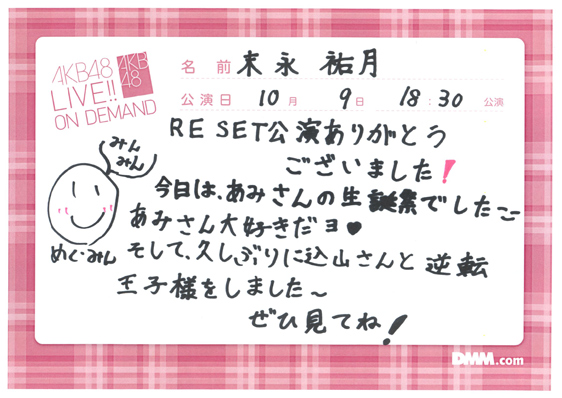 AKB48
LIVE!!
ON DEMAND
AKB
48
名 前 末永 祐月
公演日 10月 9日 18:30 公演
RESET公演ありがとう
ございました!
みん
みん
今日は、あみさんの生誕祭でした
あみさん大好きだヨ♥
めぐみん
そして、久しぶりに込山さんと逆転
王子様をしました〜
ぜひ見てね!
DMM.com